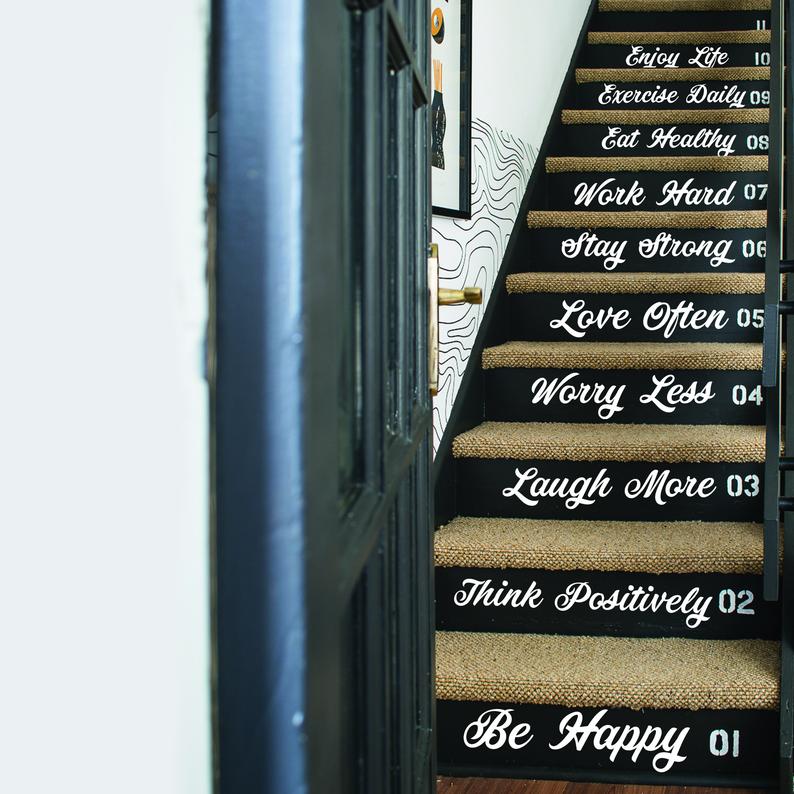 11
Enjoy Life 10
Exercise Daily 09
Eat Healthy 08
Work Hard 07
Stay Strong 06
Love Often 05
Worry Less 04
Laugh More 03
Think Positively 02
Be Happy 01